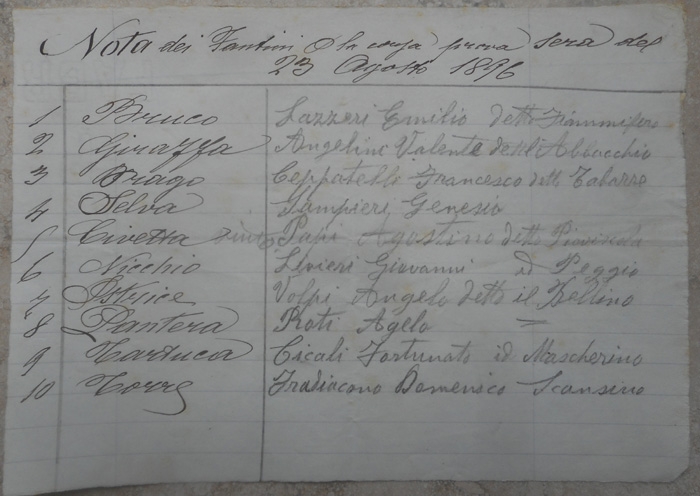 Nota dei Fantini che corsa prova sera del
23 Agosto 1896
1 Bruco Lazzeri Emilio detto Fiammifero
2 Giraffa Angelini Valente detto Abbacchio
3 Drago Ceppatelli Francesco detto Tabarre
4 Selva Sampieri Genesio
5 Civetta Papi Agostino detto
6 Nicchio Olivieri Giovanni id Peggio
7 Istrice Volpi Angelo detto il Bellino
8 Pantera Roti Agelo =
9 Tartuca Cicali Fortunato id Mascherino
10 Torre Fradiacono Domenico Scansino